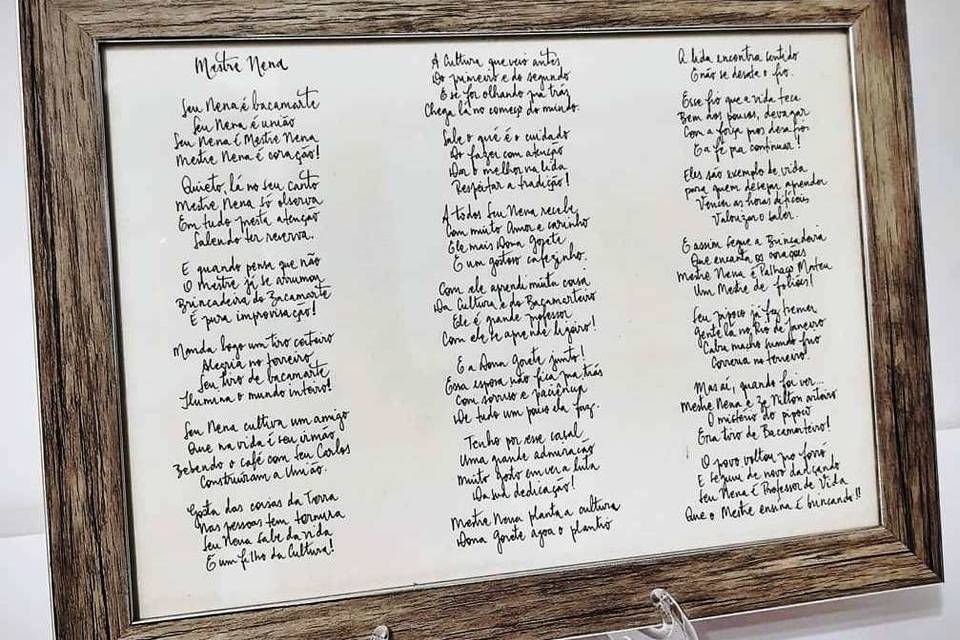 Mestre Nena
Seu Nena é bacamarte
Seu Nena é união
Seu Nena é Mestre Nena
Mestre Nena é coração!
Quieto, lá no seu canto
Mestre Nena só observa
Em tudo presta atenção
Sabendo ter reserva.
E quando pensa que não
O Mestre já se arrumou
Brincadeira do Bacamarte
É pura improvisação!
Manda logo um tiro certeiro
Alegria no terreiro
Seu tiro de bacamarte
Ilumina o mundo inteiro!
Seu Nena cultiva um amigo
Que na vida é seu irmão
Bebendo o café com Seu Carlos
Construíram a União.
Gosta das coisas da Terra
Nas pessoas tem ternura
Seu Nena sabe da vida
É um filho da Cultura!
A Cultura que veio antes
Do primeiro e do segundo
E se for olhando pra trás
Chega lá no começo do mundo.
Sabe o quê é o cuidado
Do fazer com atenção
Dar o melhor na lida
Respeitar a tradição!
A todos Seu Nena recebe
Com muito Amor e carinho
Ele mais Dona Gorete
E um gostoso cafezinho.
Com ele aprendi muita coisa
Da Cultura e do Bacamarteiro
Ele é grande professor
Com ele se aprende ligeiro!
E a Dona Gorete junto!
Essa esposa não fica pra trás
Com sorriso e paciência
De tudo um pouco ela faz.
Tenho por esse casal
Uma grande admiração
Muito gosto em ver a luta
Da sua dedicação!
Mestre Nena planta a cultura
Dona Gorete agoa o plantio
A lida encontra sentido
E não se desata o fio.
Esse fio que a vida teca
Bem aos poucos, devagar
Com a força pros desafios
E a fé pra continuar!
Eles são exemplo de vida
para quem desejar aprender
Vencer as horas difíceis
Valorizar o saber.
E assim segue a Brincadeira
Que encanta os corações
Mestre Nena é Palhaço Mateu
Um Mestre de foliões!
Seu pipoco já fez tremer
Gente lá no Rio de Janeiro
Cabra macho sumindo
Correria no terreiro
Mas aí, quando foi ver...
Mestre Nena e Zé Nilton arteiro
O mistério do pipoco
Era tiro de Bacamarteiro!
O povo voltou pro forró
E seguiu de novo dançando
Seu Nena é Professor de Vida
Que o Mestre ensina é brincando!!